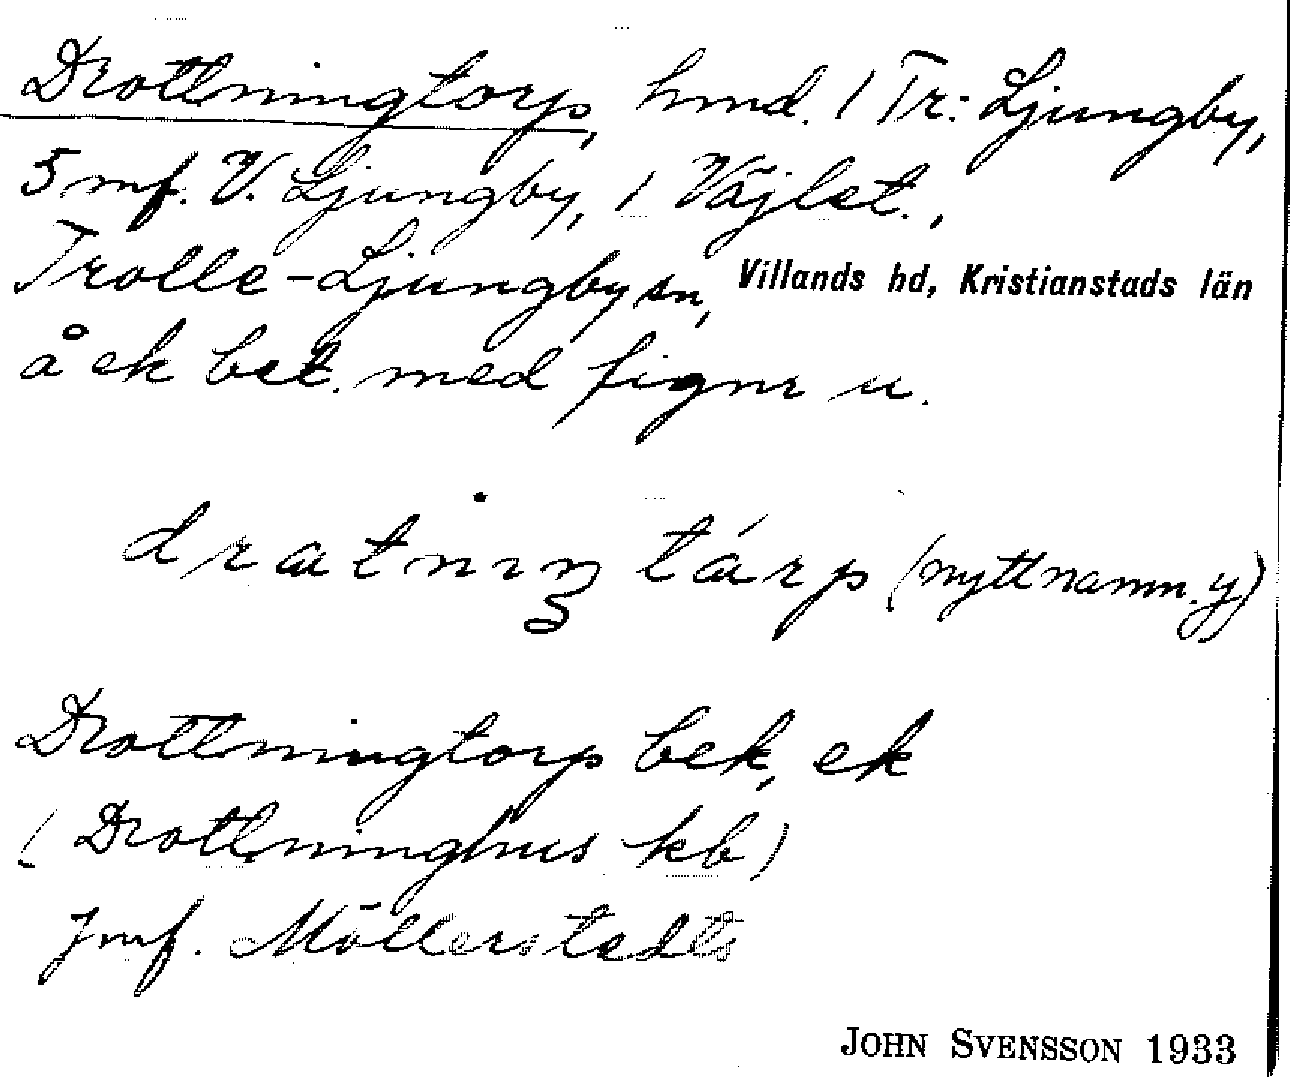 Drottningtorp, hmd. / Tr:Ljungby,
5 mf. V. Ljungby, / Väjlet.,
Trolle-Ljungby sn, Villands hd, Kristianstads län
å ek bet. med fignr u.
drɑtnıŋ tárp (nytt namn. y)
Drottningtorp bek, ek
(Drottninghus kb)
Jmf. Möllerstedts
JOHN SVENSSON 1933